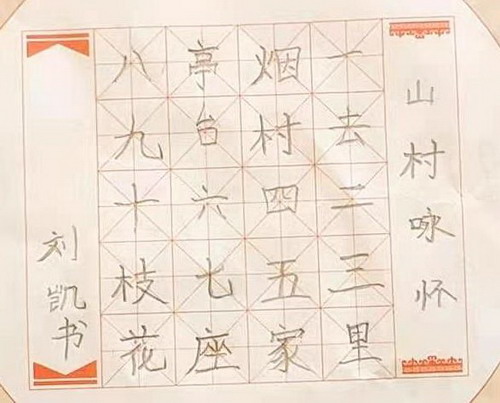 山村咏怀
一去二三里
烟村四五家
亭台六七座
八九十枝花
刘凯书